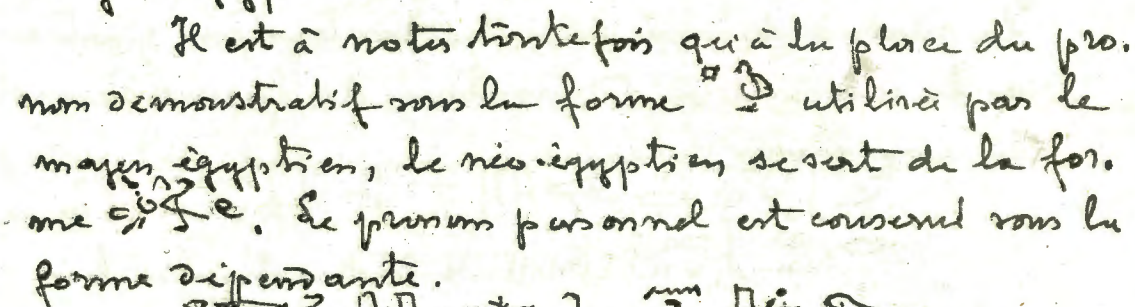 Il est à noter toutefois qu'à la place du pro-
nom demonstratif sous la forme utilisée par le
moyen égyptien, le néo-égyptien se sert de la for-
me . Le pronom personnel est conservé sous la
forme dépendante.